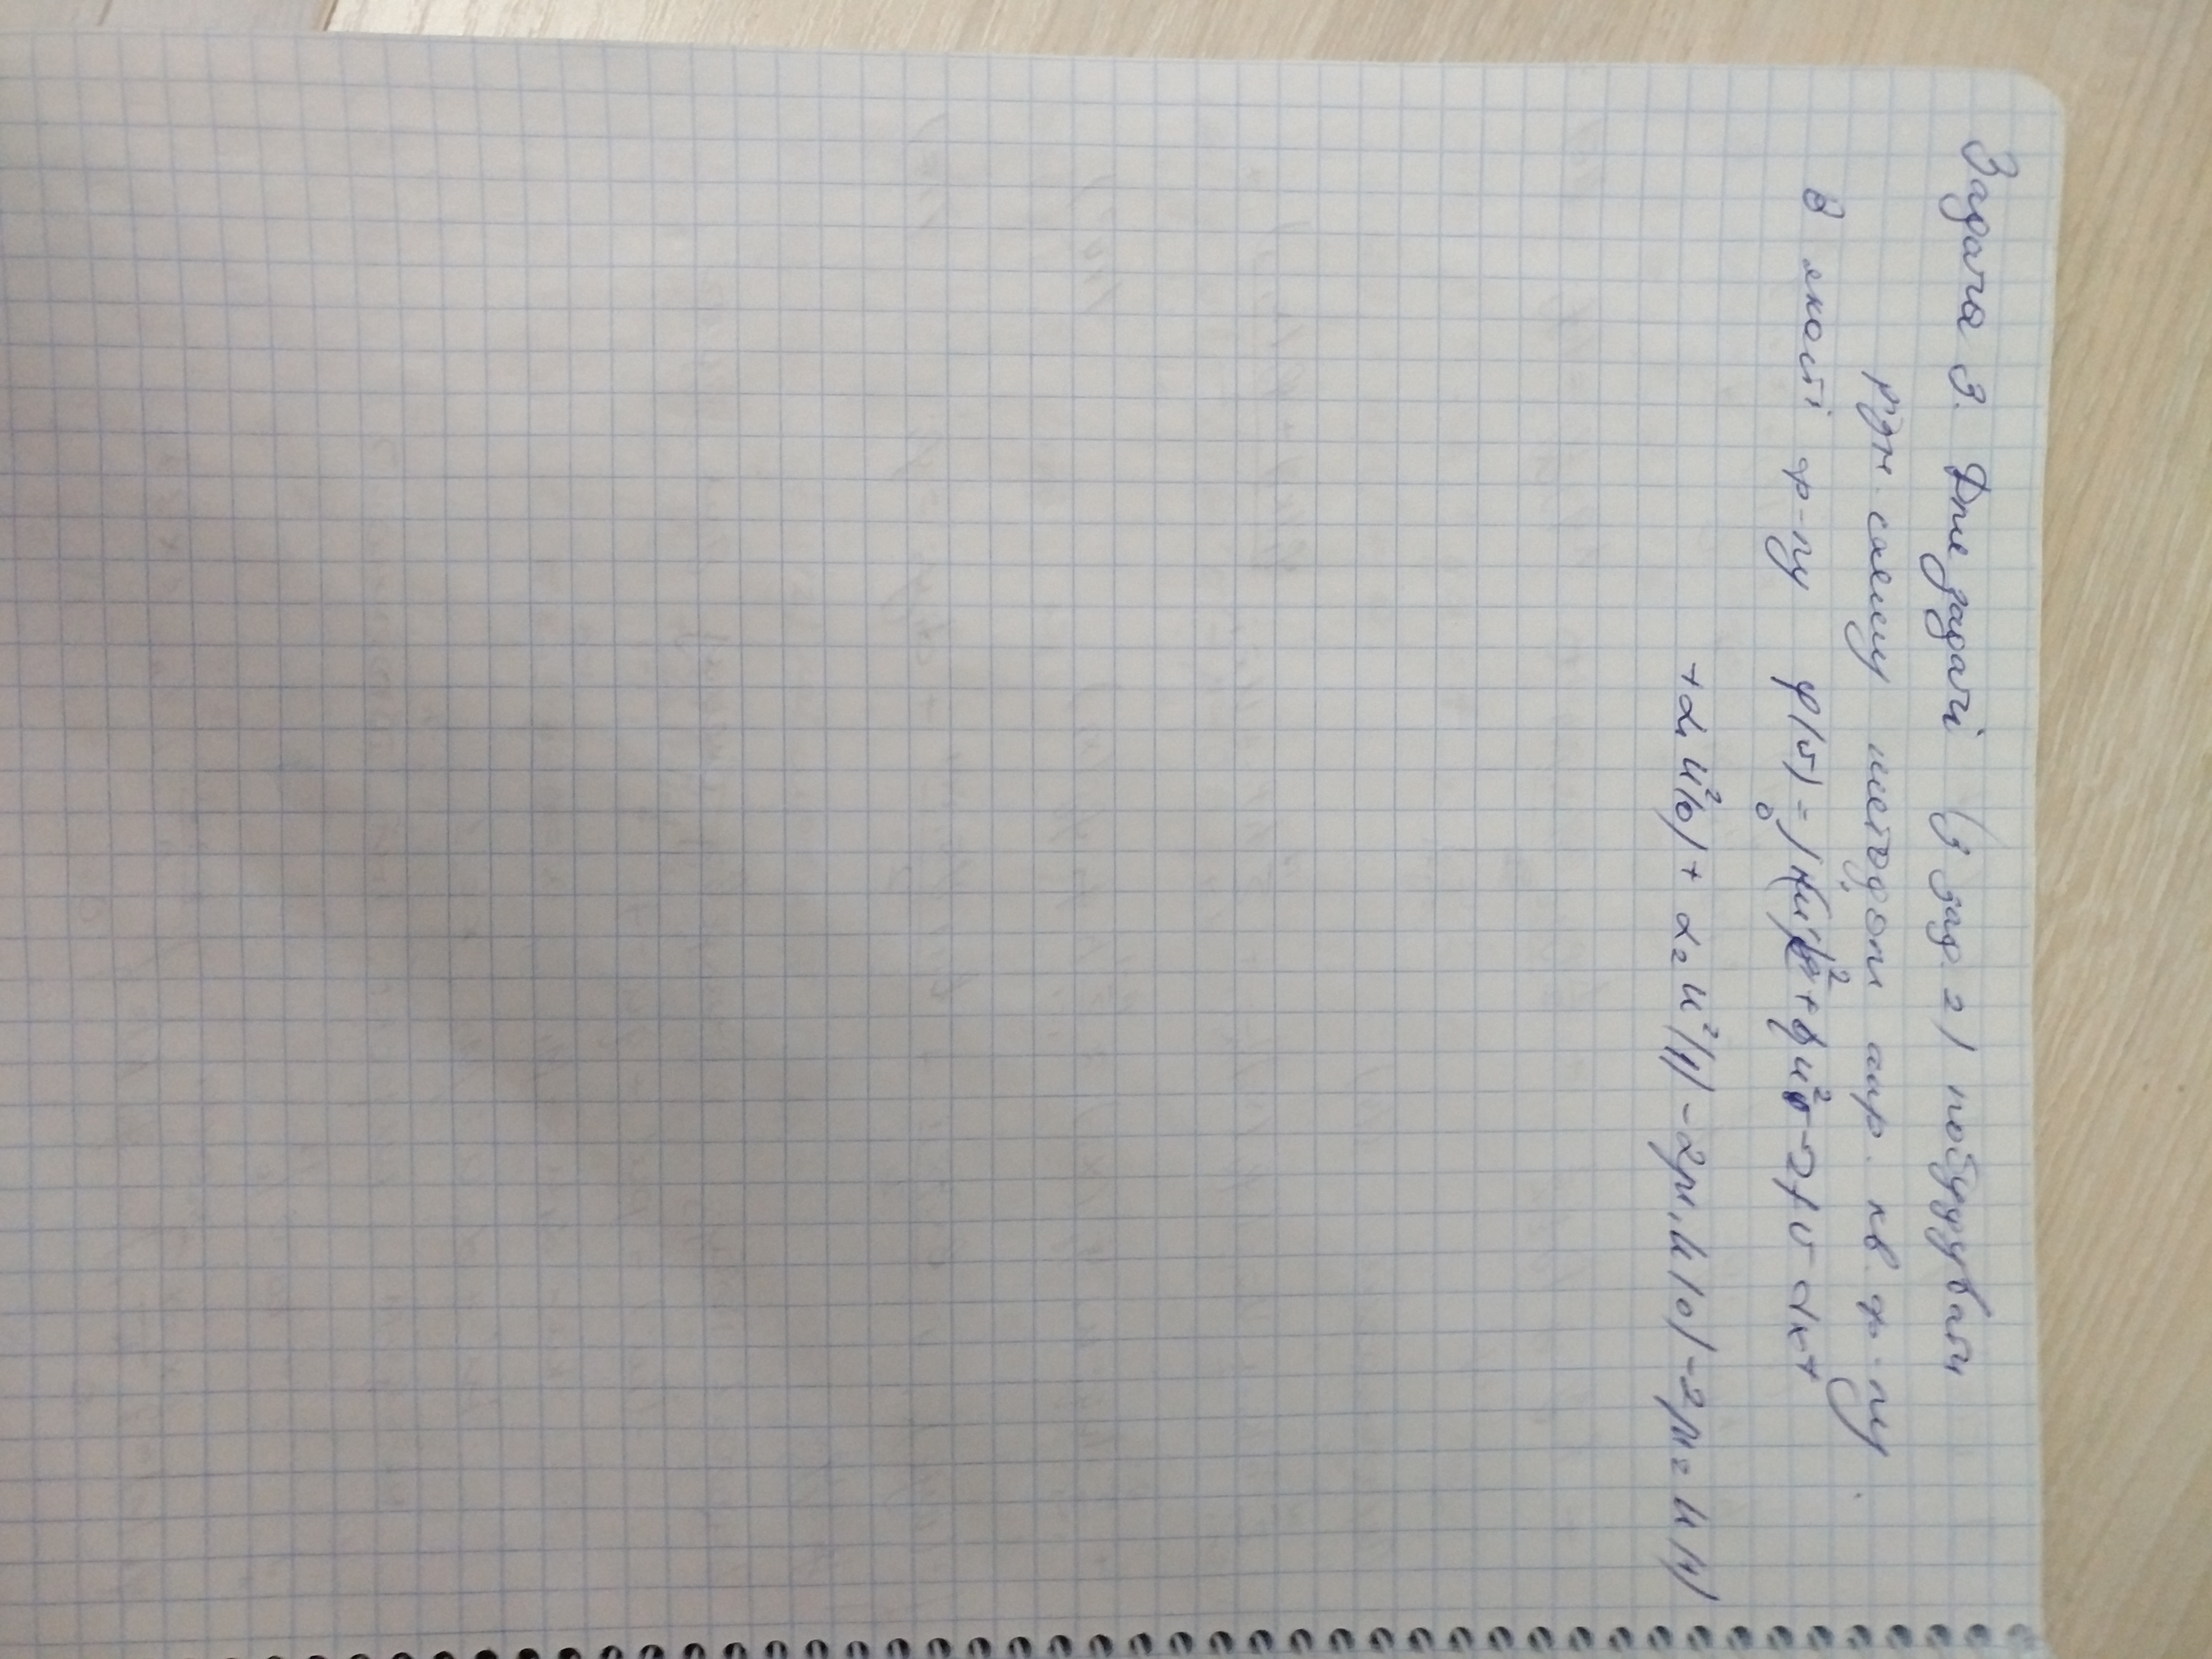 Задача 3. Для задачі (з зад. 2) побудувати
різн. схему методом апр. кв. ф-лу.
В якості ф-лу φ(v) = ∫₀ (k(u')² + qu² - 2fv dx +
+ α₁ u²(0) + α₂ u²(1) - 2μ₁ u(0) - 2μ₂ u(1)